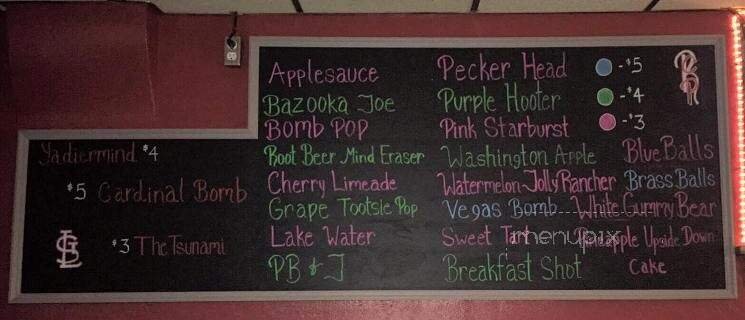 Yadiermind $4
$5 Cardinal Bomb
STL
$3 The Tsunami
Applesauce
Bazooka Joe
Bomb Pop
Root Beer Mind Eraser
Cherry Limeade
Grape Tootsie Pop
Lake Water
PB & J
Pecker Head
Purple Hooter
Pink Starburst
Washington Apple
Watermelon Jolly Rancher
Vegas Bomb
Sweet Tart
Breakfast Shot
-$5
-$4
-$3
Blue Balls
Brass Balls
White Gummy Bear
Pineapple Upside Down
Cake
menupix